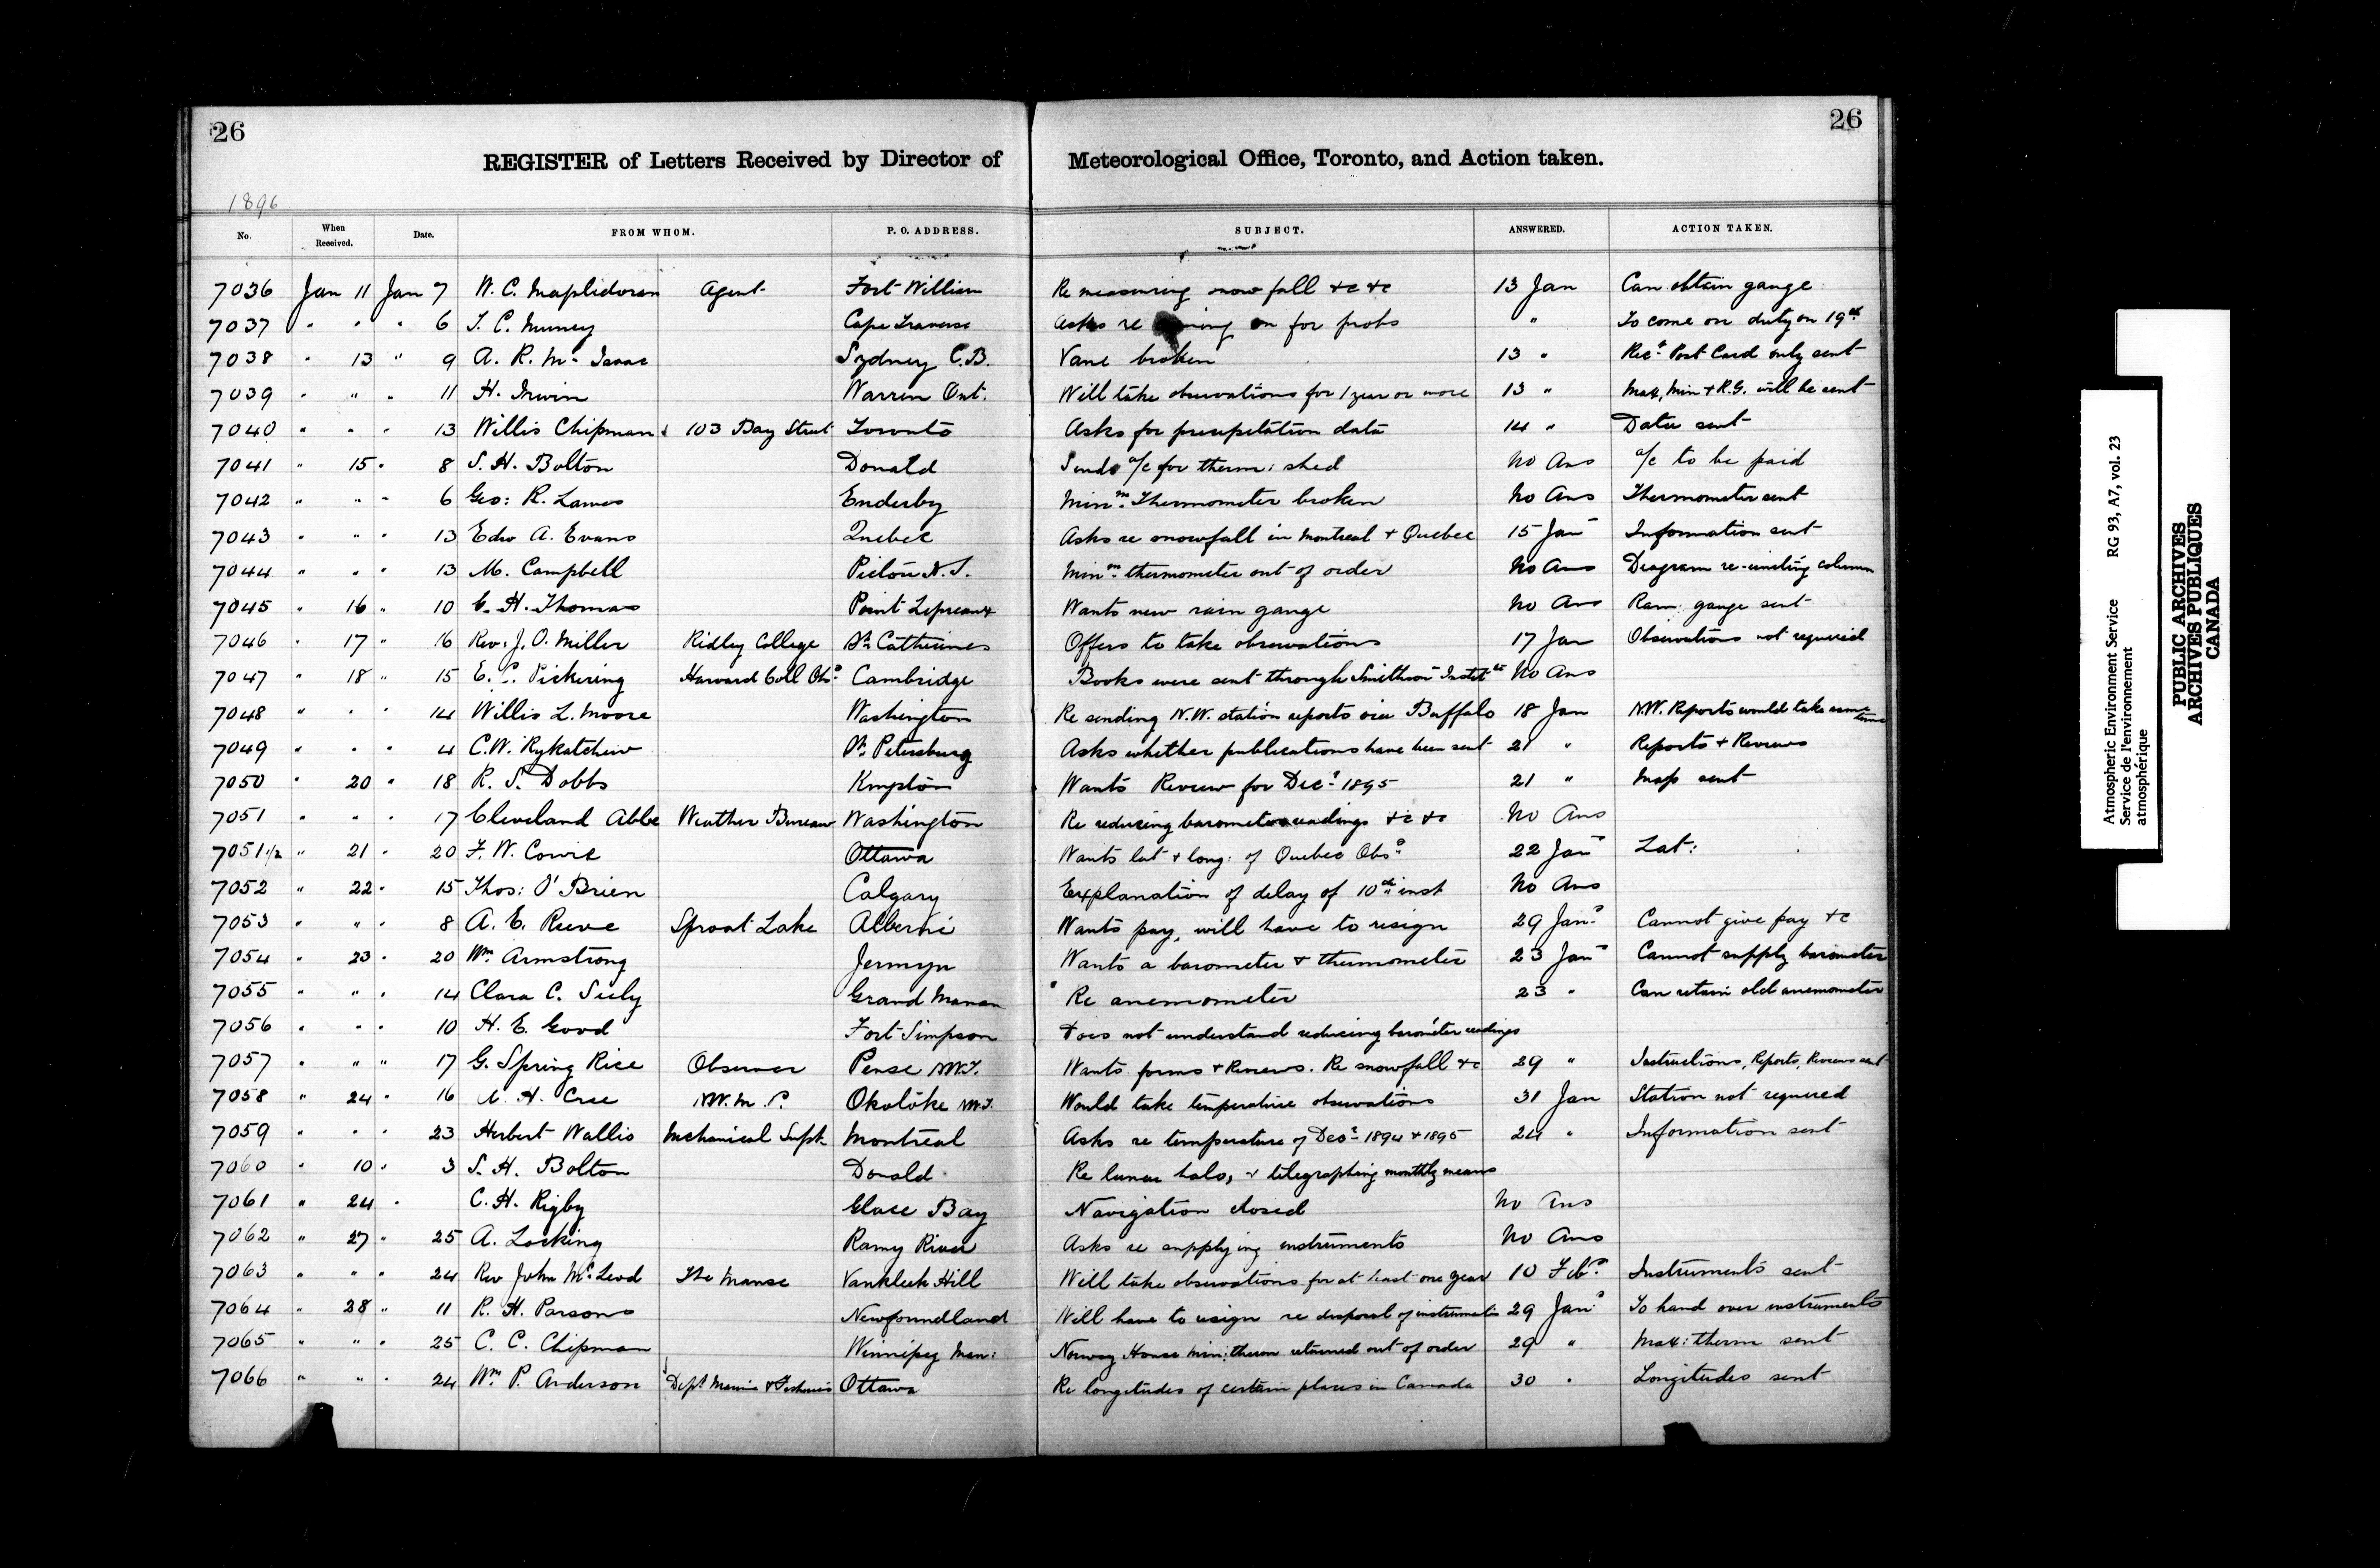 26
26
REGISTER of Letters Received by Director of Meteorological Office, Toronto, and Action taken.
1896
No. When Received. Date. FROM WHOM. P. O. ADDRESS. SUBJECT. ANSWERED. ACTION TAKEN.
7036 Jan 11 Jan 7 W. C. Agent Fort William Re measuring snow fall &c &c 13 Jan Can obtain gauge
7037 " " " 6 Cape Traverse Asks re on for probs " To come on duty on 19th
7038 " 13 " 9 A. R. Mc Isaac Sydney C.B. Vane broken 13 " Post Card only sent
7039 " " " 11 H. Irwin Warren Ont. Will take observations for 1 year or more 13 " Max, Min & R.G. will be sent
7040 " " " 13 Willis Chipman 103 Bay Street Toronto Asks for precipitation data 14 " Data sent
7041 " 15 " 8 S. H. Bolton Donald Sends a/c for therm: shed No Ans a/c to be paid
7042 " " " 6 Geo: R. Lawes Enderby Minm. Thermometer broken No Ans Thermometer sent
7043 " " " 13 Edw A. Evans Quebec Asks re snowfall in Montreal & Quebec 15 Jan Information sent
7044 " " " 13 M. Campbell Pictou N.S. Minm. thermometer out of order No Ans Diagram re-uniting column
7045 " 16 " 10 G. H. Thomas Point Lepreaux Wants new rain gauge No Ans Rain gauge sent
7046 " 17 " 16 Rev: J. O. Miller Ridley College St. Catherines Offers to take observations 17 Jan Observations not required
7047 " 18 " 15 E. C. Pickering Harvard Coll Obsy Cambridge Books were sent through Smithson Instit No Ans
7048 " " " 14 Willis L. Moore Washington Re sending N.W. station reports via Buffalo 18 Jan N.W. Reports would take same time
7049 " " " 4 C. W. Rykatchew St. Petersburg Asks whether publications have been sent 21 " Reports & Reviews
7050 " 20 " 18 R. S. Dobbs Kmpton Wants Review for Decr 1895 21 " Map sent
7051 " " " 17 Cleveland Abbe Weather Bureau Washington Re reducing barometer readings &c &c No Ans
7051 1/2 " 21 " 20 F. W. Cowie Ottawa Wants lat & long: of Quebec Obsy 22 Jan Lat:
7052 " 22 " 15 Thos: O'Brien Calgary Explanation of delay of 10th inst No Ans
7053 " " " 8 A. E. Reeve Sproat Lake Alberni Wants pay, will have to resign 29 Jany Cannot give pay &c
7054 " 23 " 20 Wm. Armstrong Jermyn Wants a barometer & thermometer 23 Jan Cannot supply barometer
7055 " " " 14 Clara C. Seely Grand Manan Re anemometer 23 " Can retain old anemometer
7056 " " " 10 H. E. Good Fort Simpson Does not understand reducing barometer readings
7057 " " " 17 G. Spring Rice Observer Pense N.W.T. Wants forms & Reviews. Re snowfall &c 29 " Instructions, Reports, Reviews sent
7058 " 24 " 16 H. Cree N.W.M.P. Okotoke N.W.T. Would take temperature observations 31 Jan Station not required
7059 " " " 23 Herbert Wallis Mechanical Supt. Montreal Asks re temperature of Decr 1894 & 1895 24 " Information sent
7060 " 10 " 3 S. H. Bolton Donald Re lunar halo, & telegraphing monthly means
7061 " 24 " C. H. Rigby Glace Bay Navigation closed No Ans
7062 " 27 " 25 A. Locking Rainy River Asks re supplying instruments No Ans
7063 " " " 24 Rev John McLeod The Manse Vankleek Hill Will take observations for at least one year 10 Feby Instruments sent
7064 " 28 " 11 R. H. Parsons Newfoundland Will have to resign re disposal of instruments 29 Jany To hand over instruments
7065 " " " 25 C. C. Chipman Winnipeg Man: Norway House min: therm returned out of order 29 " Max: therm sent
7066 " " " 24 Wm. P. Anderson Dept. Marine & Fisheries Ottawa Re longitudes of certain places in Canada 30 " Longitudes sent
Atmospheric Environment Service RG 93, A7, vol. 23
Service de l'environnement
atmosphérique
PUBLIC ARCHIVES
ARCHIVES PUBLIQUES
CANADA